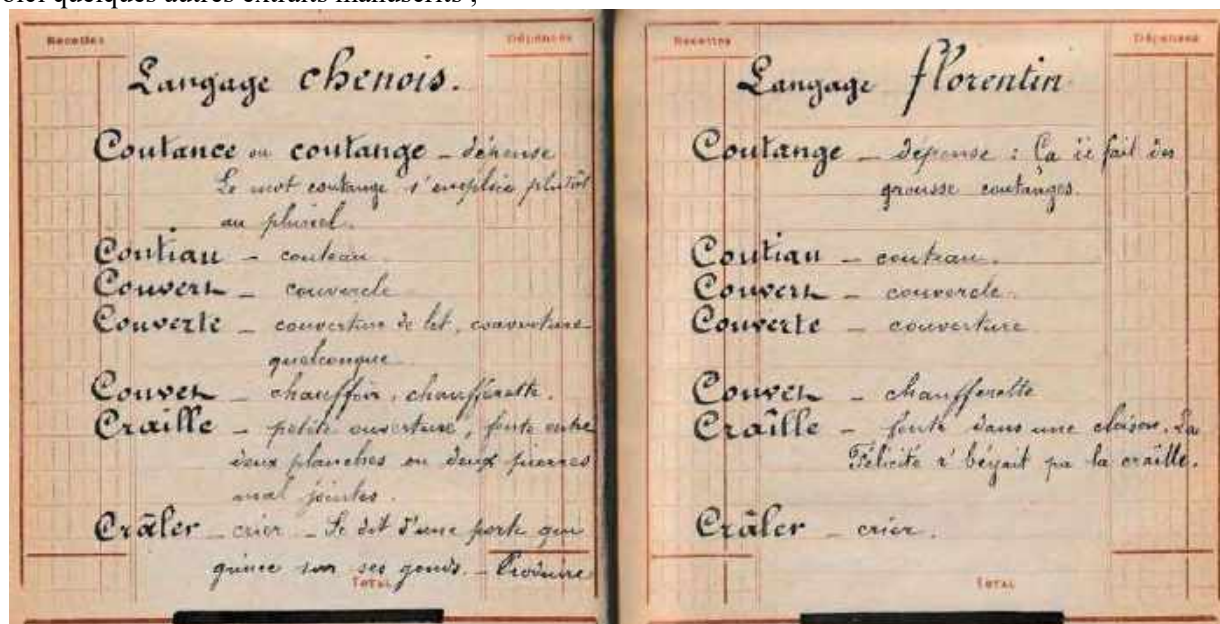 quelques autres extraits manuscrits ;
Recettes Dépenses
Langage chenois.
Coutance ou coutange – dépense
Le mot coutange s'emploie plutôt
au pluriel.
Coutiau – couteau.
Couvert – couvercle
Couverte – couverture de lit, couverture
quelconque.
Couvet – chauffoir, chaufferette.
Craille – petite ouverture, fente entre
deux planches ou deux pierres
mal jointes.
Crâler – crier – Se dit d'une porte qui
grince sur ses gonds. – Produire
TOTAL
Recettes Dépenses
Langage florentin
Coutange – dépense : Ça fait des
grousse coutanges.
Coutiau – couteau.
Couvert – couvercle.
Couverte – couverture
Couvet – chaufferette
Craîlle – fente dans une cloison. La
Félicité r'béyait pa la craîlle.
Crâler – crier.
TOTAL